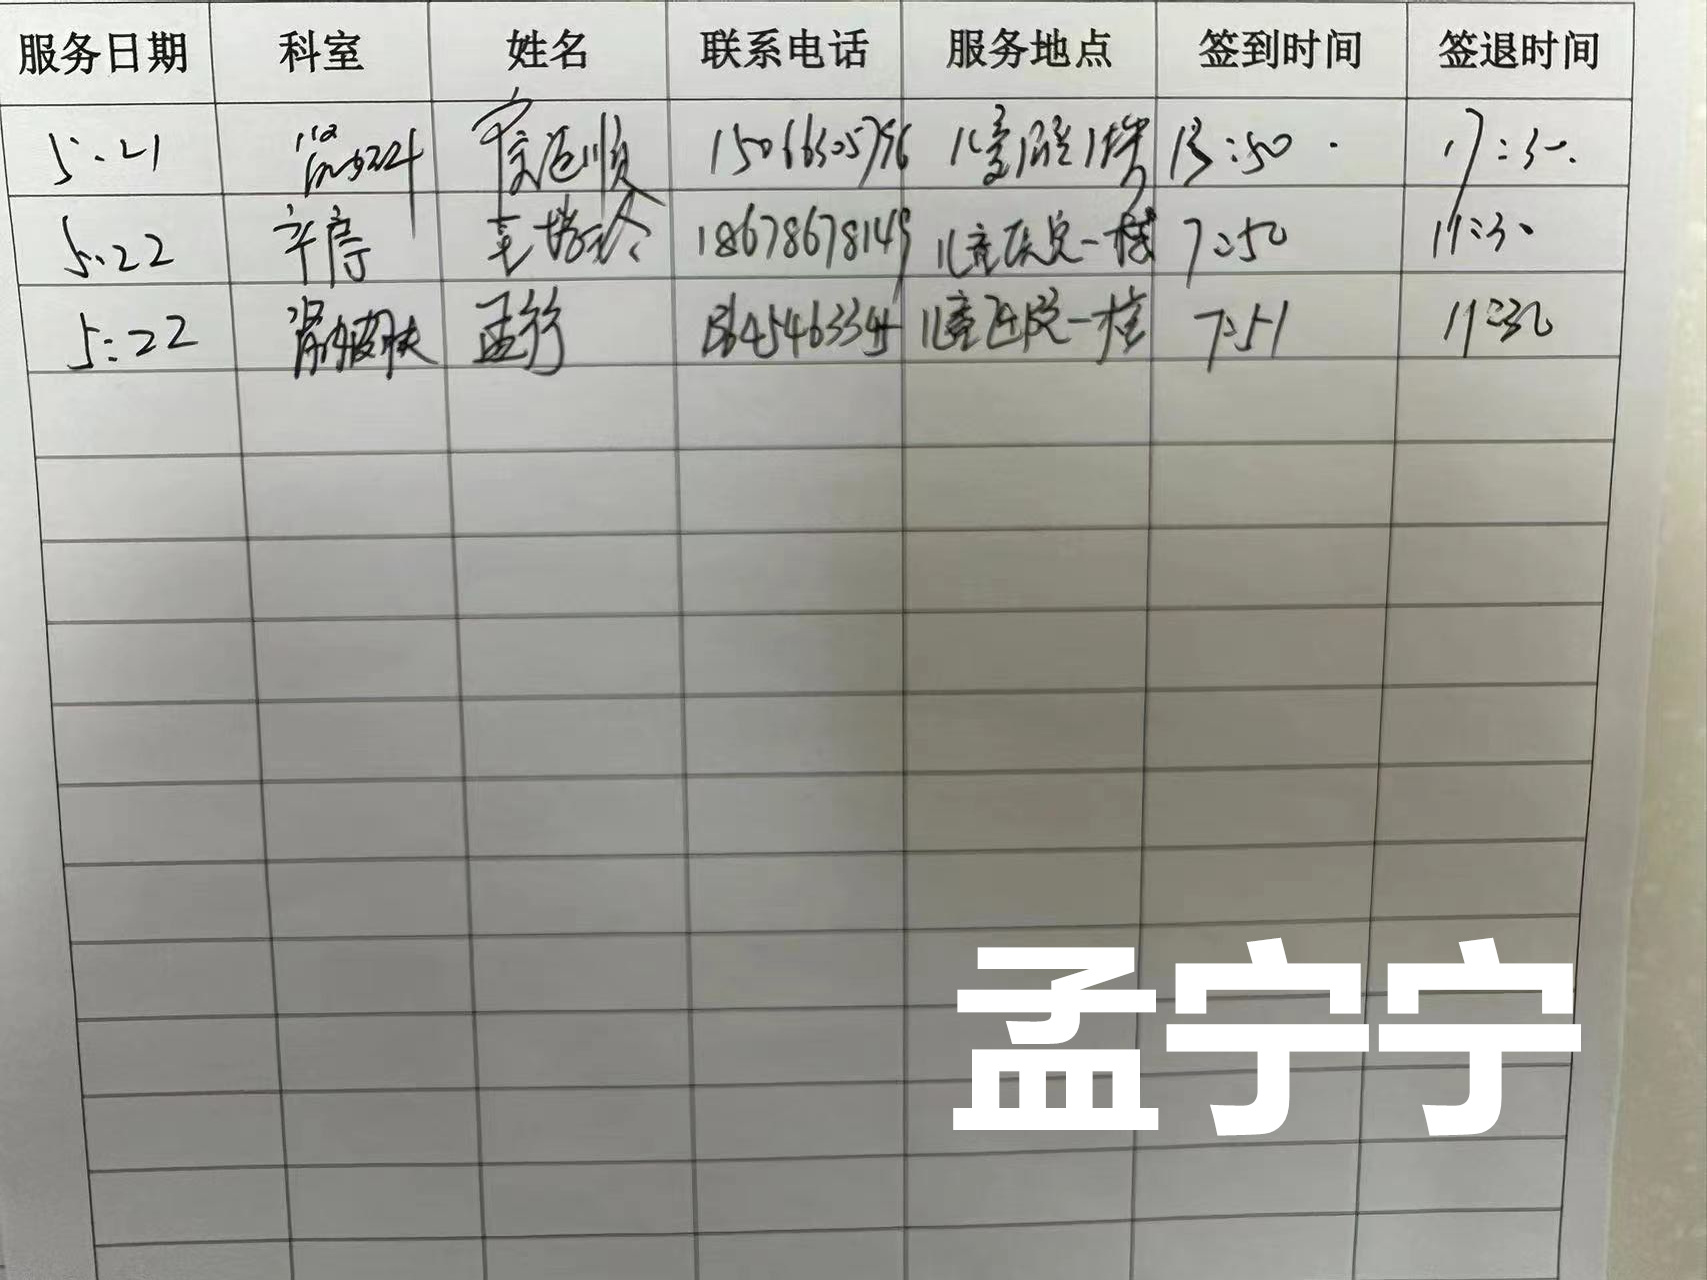 服务日期 科室 姓名 联系电话 服务地点 签到时间 签退时间
5.21 15066305796 儿童医院1楼 13:50 17:30
5.22 18678678149 儿童医院一楼 7:50 11:30
5:22 肾内皮肤 孟 儿童医院一楼 7:51 11:30
孟宁宁